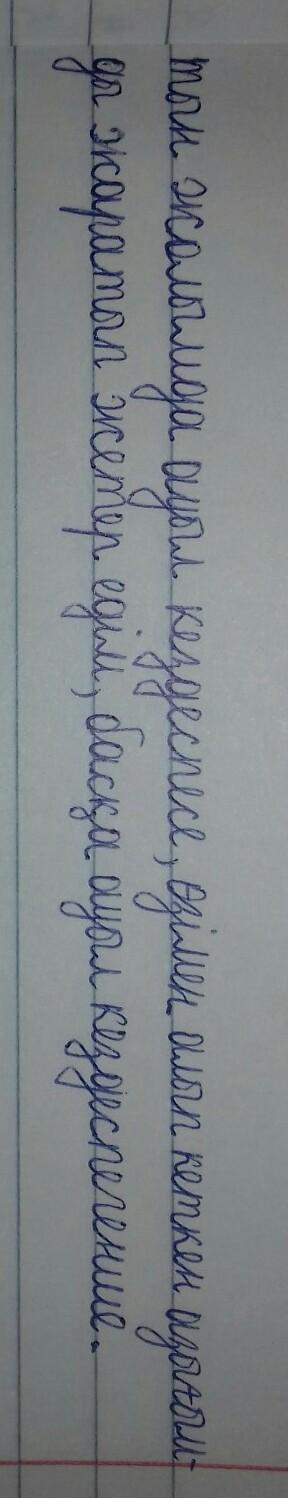 тын жолымда ауыл кездеспесе, өзімен алып кеткен азығым-
ды жаратып жетер едім, басқа ауыл кездеспегенше.